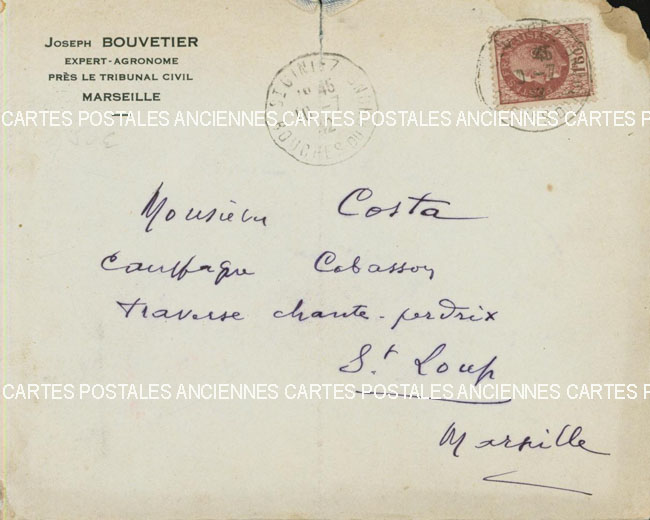 JOSEPH BOUVETIER
EXPERT-AGRONOME
PRÈS LE TRIBUNAL CIVIL
MARSEILLE
BOUCHES DU
1F50
CARTES POSTALES ANCIENNES CARTES POSTALES ANCIENNES CARTES POSTALES
Monsieur Costa
Campagne Cobasson
Traverse chante-perdrix
St Loup
CARTES POSTALES ANCIENNES CARTES POSTALES ANCIENNES CARTES POSTALES
Marseille